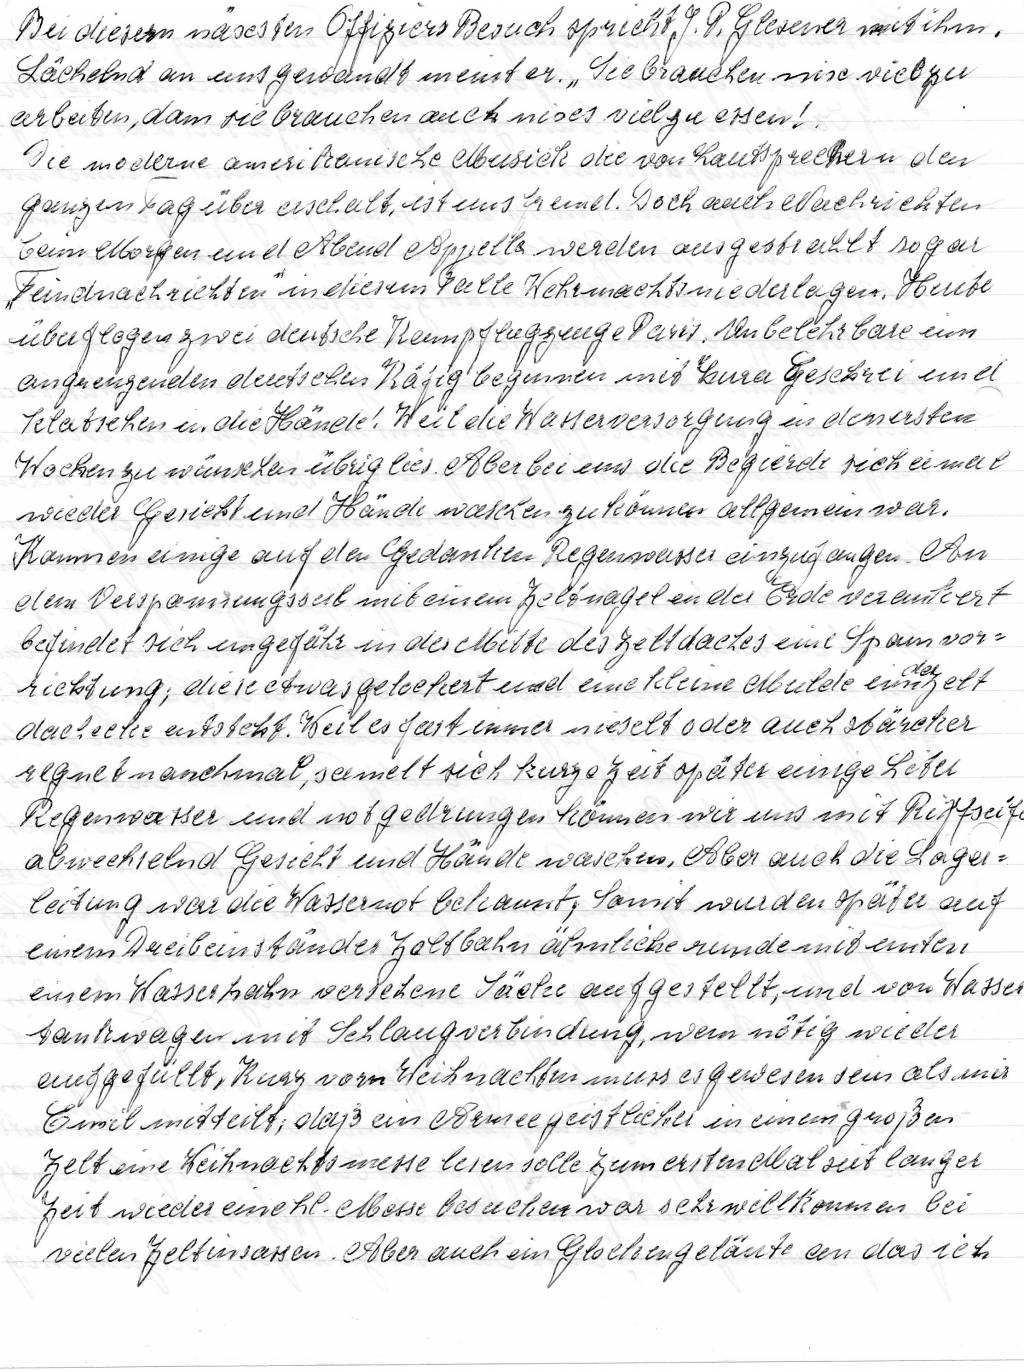 Bei diesem näxesten Offiziers Besuch spricht J. P. Glesener mit ihm.
Lächelnd an uns gewandt meint er. „Sie brauchen nixe viel zu
arbeiten, dann sie brauchen auch nixes viel zu essen!.
Die moderne amerikanische Musick die von Lautsprechern den
ganzen Tag über erschalt, ist uns fremd. Doch auch Nachrichten
beim Morgen und Abend Appells werden ausgestrahlt sogar
„Feindnachrichten" in diesem Falle Wehrmachtsniederlagen. Heute
überflogen zwei deutsche Kampflugzeuge Paris. Unbelehrbare im
angrenzenden deutschen Käfig beginnen mit hura Geschrei und
klatschen in die Hände! Weil die Wasserversorgung in den ersten
Wochen zu wünschen übrig lies. Aber bei uns die Begierde sich eimal
wieder Gesicht und Hände waschen zu können allgemein war.
Kammen einige auf den Gedanken Regenwasser einzufangen. An
dem Verspannungsseil mit einem Zeltnagel in der Erde verankert
befindet sich ungefähr in der Mitte des Zeltdaches eine Spannvor=
richtung; diese etwas gelockert und eine kleine Mulde in der Zelt
dachecke entsteht. Weil es fast immer nieselt oder auch stärcker
regnet manchmal, samelt sich kurze Zeit später einige Liter
Regenwasser und notgedrungen können wir uns mit Riffseife
abwechselnd Gesicht und Hände waschen. Aber auch die Lager=
leitung war die Wassernot bekannt; Somit wurden später auf
einem Dreibeinständer Zeltbahn ähnliche runde mit unten
einem Wasserhahn versehene Säcke aufgestellt, und von Wasser
tankwagen mit Schlaugverbindung, wenn nötig wieder
aufgefüllt, Kurz vorn Weihnachten muss es gewesen sein als mir
Emil mitteilt; daß ein Armeegeistlicher in einem großen
Zelt eine Weihnachtsmesse lesen solle Zum ersten Mal seit langer
Zeit wieder eine hl. Messe besuchen war sehr willkommen bei
vielen Zeltinsassen. Aber auch ein Glockengeläute an das ich